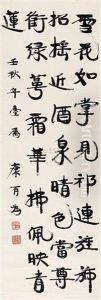 雪花如掌見祁連旌旆
招搖近酒泉晴色當尊
銜綠萼霜華拂佩映青
蓮
壬秋 臺 康有為